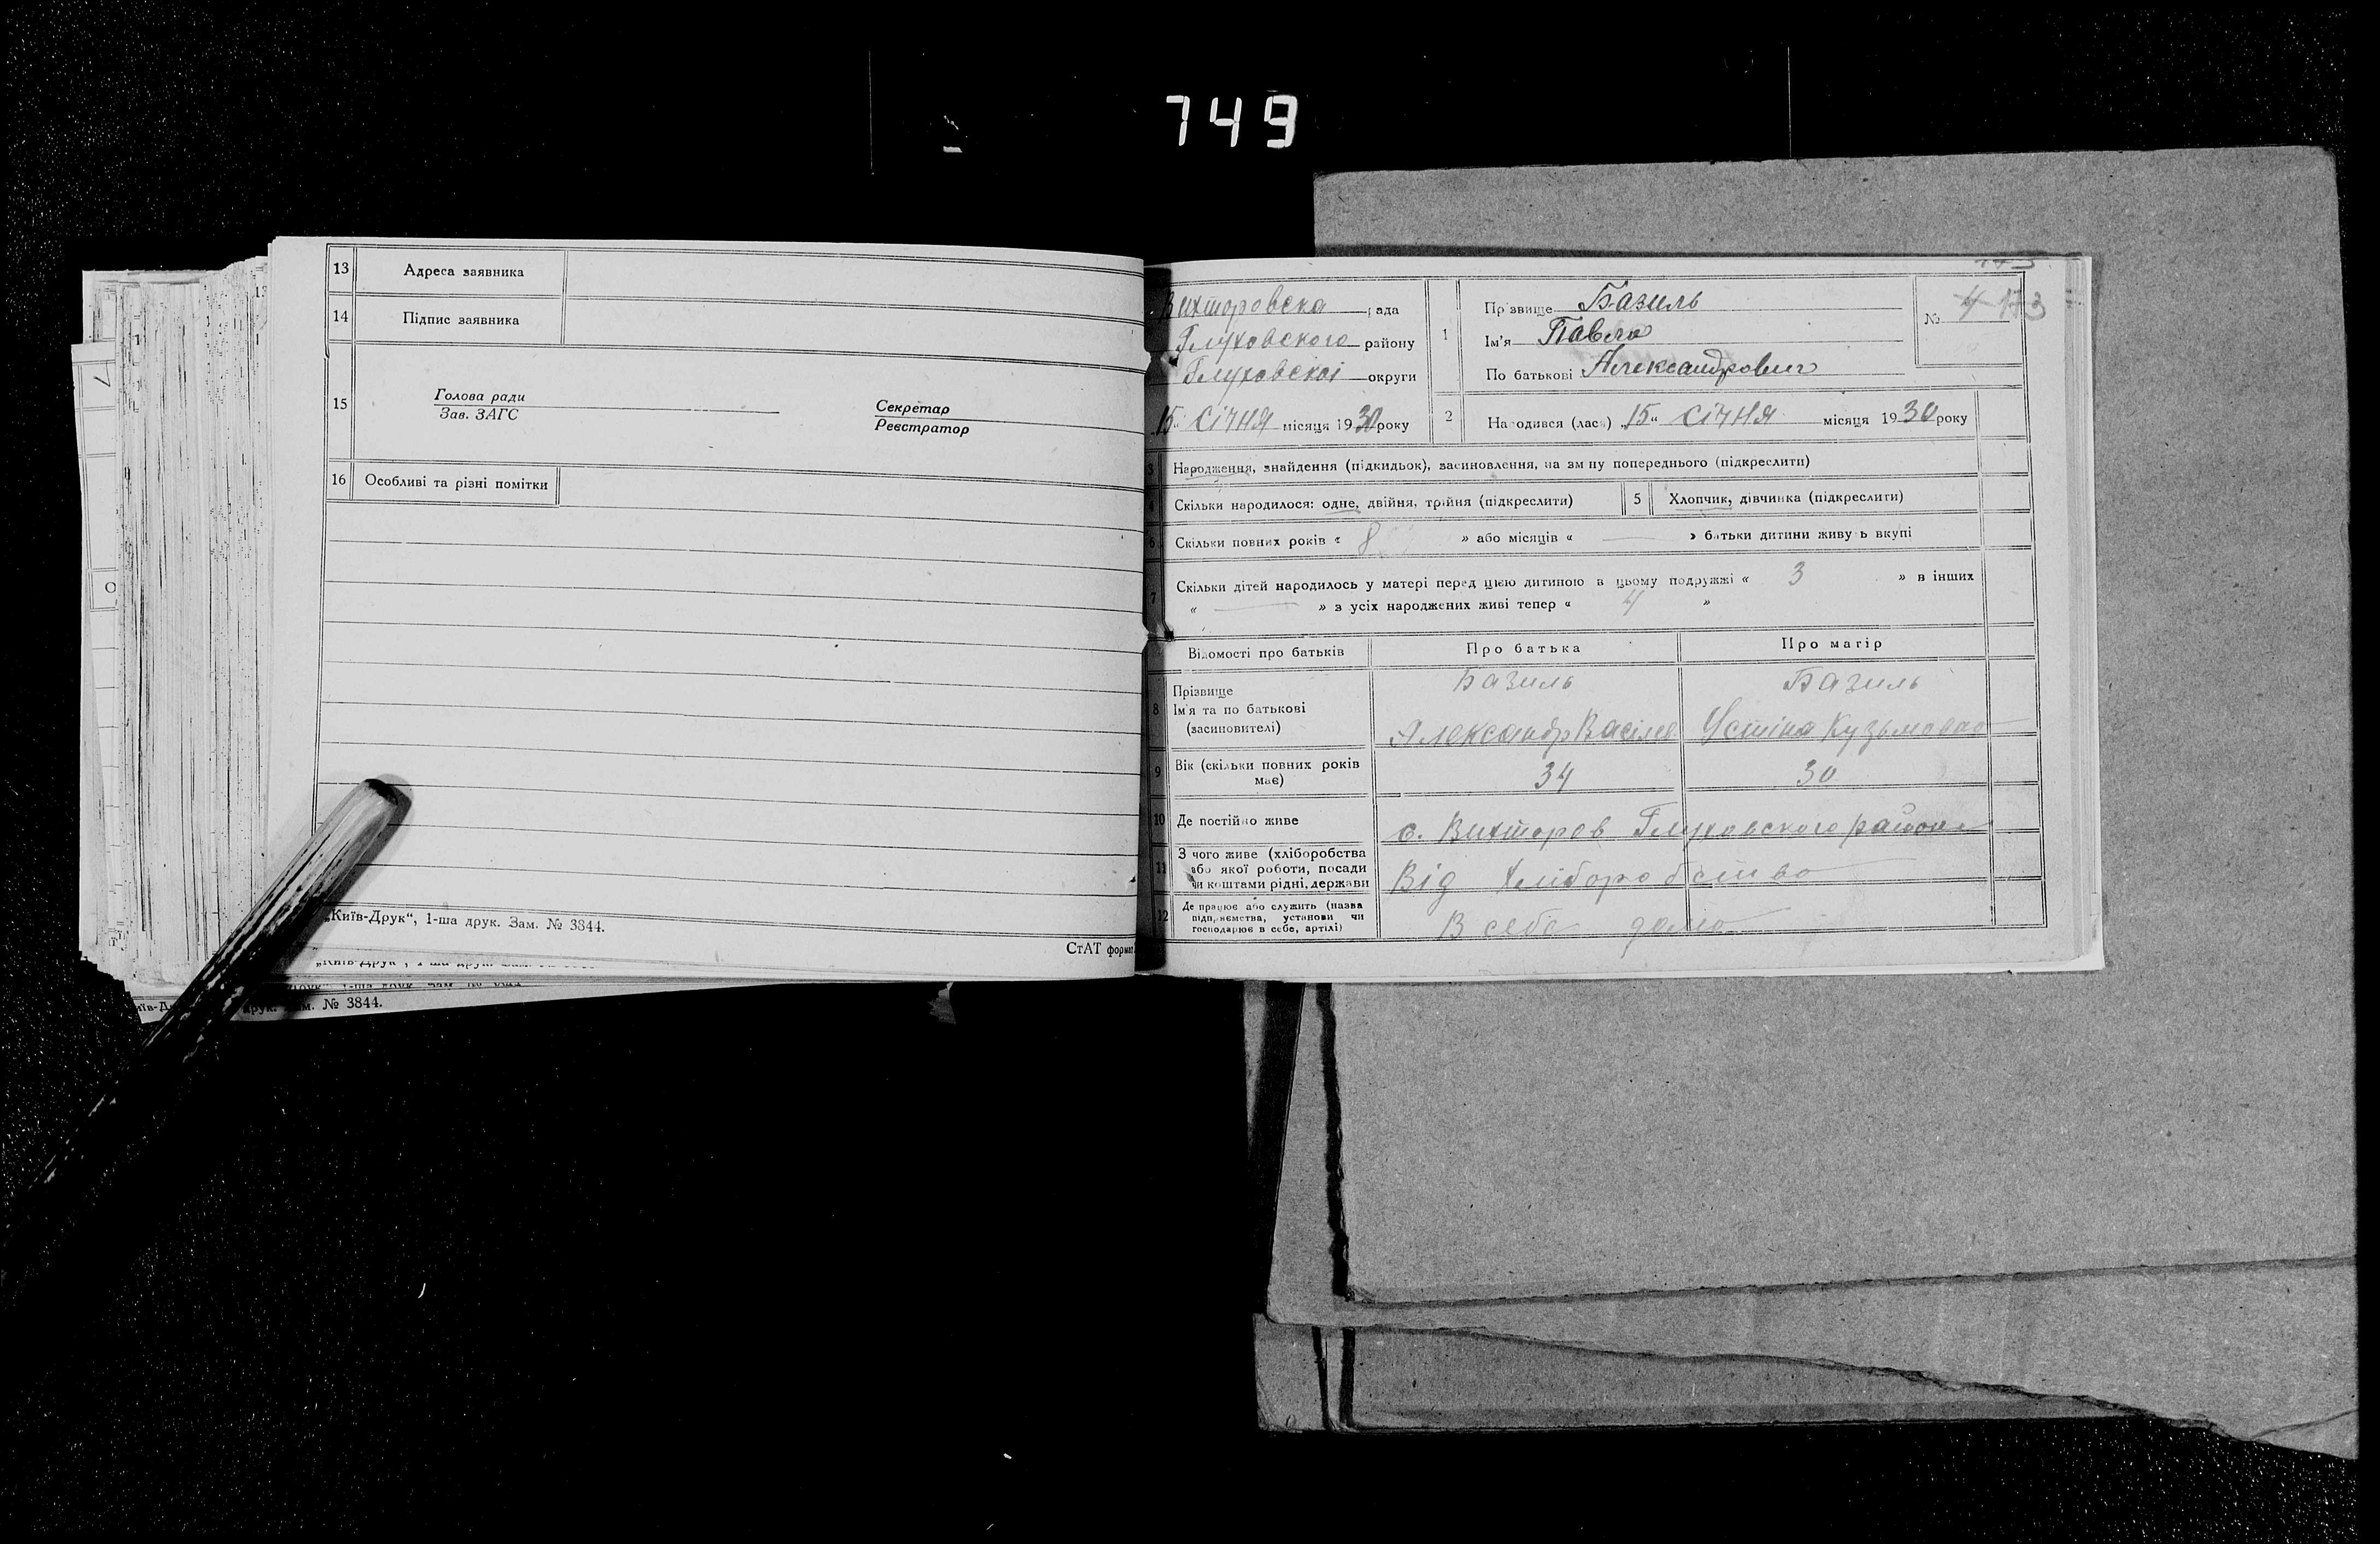 749
13 Адреса заявника
14 Підпис заявника
15 Голова ради
Зав. ЗАГС
Секретар
Реєстратор
16 Особливі та різні помітки
„Київ-Друк“, 1-ша друк. Зам. № 3844.
СтАТ формат
№ 3844.
Вихторовска рада
Глуховского району
Глуховскої округи
„15“ Січня місяця 1930 року
1 Прізвище Базиль
Ім'я Павло
По батькові Александрович
№ 4 173
2 Народився (лась) „15“ Січня місяця 1930 року
3 Народження, знайдення (підкидьок), засиновлення, на зміну попереднього (підкреслити)
4 Скільки народилося: одне, двійня, трійня (підкреслити)
5 Хлопчик, дівчинка (підкреслити)
6 Скільки повних років « 8 » або місяців « — » батьки дитини живуть вкупі
7 Скільки дітей народилось у матері перед цією дитиною в цьому подружжі « 3 » в інших
« — » з усіх народжених живі тепер « 4 »
Відомості про батьків Про батька Про матір
8 Прізвище Базиль Базиль
Ім'я та по батькові
(засиновителі) Александр Васілев Устіна Кузьмовна
9 Вік (скільки повних років
має) 34 30
10 Де постійно живе с. Вихторов Глуховского района
11 З чого живе (хліборобства
або якої роботи, посади
чи коштами рідні, держави Від Хліборобство
12 Де працює або служить (назва
підприємства, установи чи
господарює в себе, артілі) В себе дома